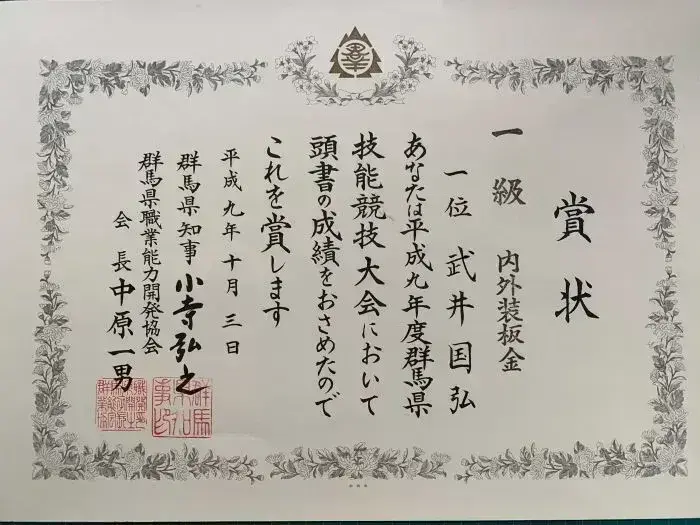 賞状
一級 内外装板金
一位 武井国弘
あなたは平成九年度群馬県
技能競技大会において
頭書の成績をおさめたので
これを賞します
平成九年十月三日
群馬県知事 小寺弘之
群馬県職業能力開発協会
会長 中原一男